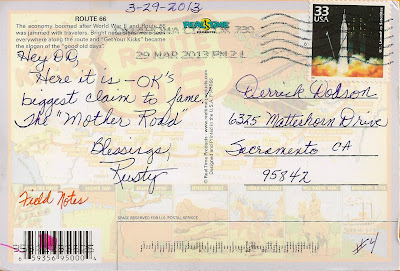 3-29-2013
ROUTE 66
The economy boomed after World War II and Route 66
was jammed with travelers. Bright neon
everywhere along the route and "Get Your Kicks" became
the slogan of the "good old days".
29 MAR 2013 PM 2 L
33
USA
Hey DD,
Here it is - OK's
biggest claim to fame,
The "Mother Road"
Blessings,
Rusty
Field Notes
Derrick Dodson
6325 Matterhorn Drive
Sacramento CA
95842
SPACE RESERVED FOR U.S. POSTAL SERVICE
6 59356 95000 4
#4